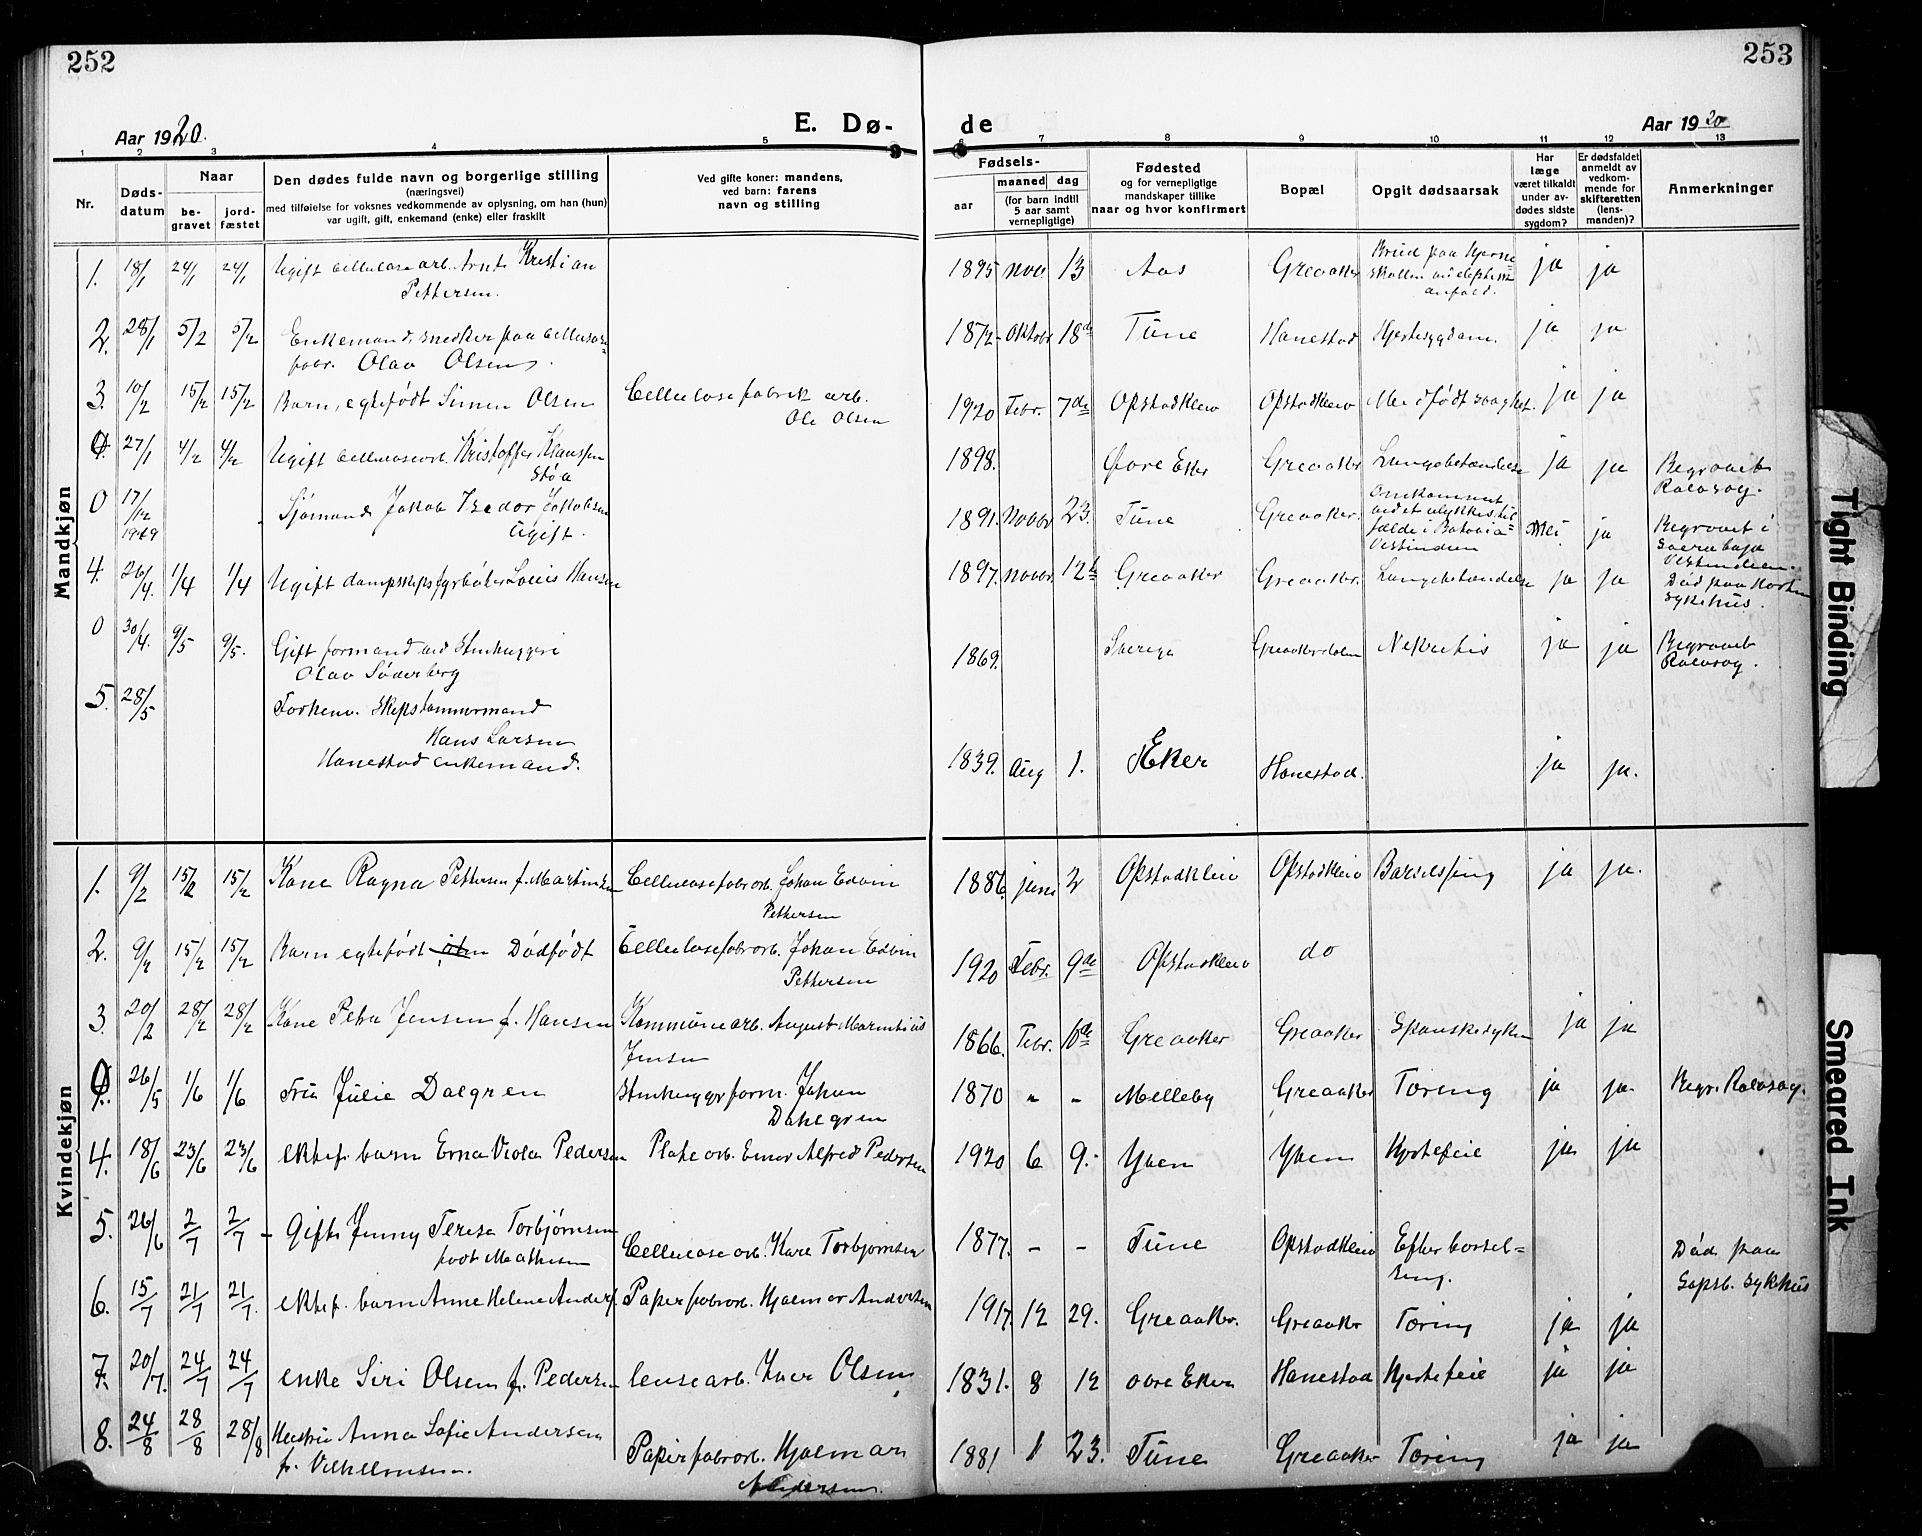 252
253
Aar 1920.
E. Dø-
de
Aar 1920
1 2 3 4 5 6 7 8 9 10 11 12 13
Nr.
Døds-
datum
Naar
be-
gravet
jord-
fæstet
Den dødes fulde navn og borgerlige stilling
(næringsvei)
med tilføielse for voksnes vedkommende av oplysning, om han (hun)
var ugift, gift, enkemand (enke) eller fraskilt
Ved gifte koner: mandens,
ved barn: farens
navn og stilling
Fødsels-
aar
maaned dag
(for barn indtil
5 aar samt
vernepligtige)
Fødested
og for vernepligtige
mandskaper tillike
naar og hvor konfirmert
Bopæl
Opgit dødsaarsak
Har
læge
været tilkaldt
under av-
dødes sidste
sygdom?
Er dødsfaldet
anmeldt av
vedkom-
mende for
skifteretten
(lens-
manden)?
Anmerkninger
Mandkjøn
1. 18/1 24/1 24/1 Ugift cellulosearb. Arnt Kristian
Pettersen.
1895 nov. 13 Aas Greaaker Brud paa hjerne-
skallen
anfald.
ja ja
2. 28/1 5/2 5/2 Enkemand, snedker paa cellulose-
fabr. Olav Olsen.
1872 Oktobr 18de Tune Hanestad Hjertesygdom. ja ja
3. 10/2 15/2 15/2 Barn, egtefødt Simen Olsen Cellulosefabrik arb.
Ole Olsen
1920 Febr. 7de Opstadkleiv Opstadkleiv Medfødt svaghet. ja ja
0. 27/1 4/2 4/2 Ugift cellulosearb. Kristoffer Klaussen
Støa
1898. Øvre Eker Greaaker Lungebetændelse ja ja Begravet
Rolvsøy.
0 17/12
1919
Sjømand Jakob Isador Jakobsen
Ugift.
1891. Novbr 23. Tune Greaaker. Omkommet
ved et ulykkestil-
fælde i Batavia-
Vestindien
Nei ja Begravet i
Soerabaja
Vestindien.
4. 26/4. 1/4 1/4 Ugift dampskipsfyrbøter Louis Hansen
1897. novbr. 12te Greaaker Greaaker. Lungebetændelse ja ja Død paa Horten
sykehus.
0 30/4. 9/5 9/5. Gift formand ved Stenhuggeri
Olav Söderberg
1869. Sverige Greaakerdalen Nefretis ja ja Begravet
Rolvsøy.
5. 28/5 Forhenv. Skipstømmermand
Hans Larsen
Hanestad enkemand.
1839. Aug 1. Eker Hanestad. ja ja.
Kvindekjøn
1. 9/2 15/2 15/2 Kone Ragna Pettersen f. Martinsen Cellulosefabrarb. Johan Edvin
Pettersen
1886. juni 2 Opstadkleiv Opstadkleiv Barselseng ja ja.
2. 9/2 15/2 15/2 Barn egtefødt Dødfødt Cellulosefabrarb. Johan Edvin
Pettersen
1920 Febr. 9de Opstadkleiv do
3. 20/2 28/2 28/2 Kone Petra Jensen f. Hansen Kommunearb. August Marentius
Jensen
1866. Febr. 10de Greaaker Greaaker Spanskesyken ja ja
0. 26/5 1/6 1/6 Fru Julie Dalgren Stenhuggerform. Johan
Dahlgren
1870 " - Melleby Greaaker Tæring ja ja. Begr. Rolvsøy.
4. 18/6 23/6 23/6 ektef. barn Erna Viola Pedersen Platearb. Einar Alfred Pedersen
1920 6 9. Yven Yven Hjertefeil ja ja
5. 26/6 2/7 2/7 Gifte Jenny Terese Torbjørnsen
født Mathisen
Cellulosearb. Kare Torbjørnsen
1877. - - Tune Opstadkleiv Efter barsel-
seng.
Død paa
Sarpsb. sykhus
6. 15/7 21/7 21/7. ektef. barn Anne Helene Anders. Papirfabrarb. Hjalmar Andersen
1917. 12 29. Greaaker. Greaaker Tæring ja ja
7. 20/7. 24/7 24/7 enke Siri Olsen f. Pedersen lensearb. Iver Olsen
1831. 8 12 Øvre Eker Hanestad Hjertefeil ja ja
8. 24/8 28/8 28/8 Hustru Anna Sofie Andersen
f. Vilhelmsen.
Papirfabrarb. Hjalmar
Andersen.
1881 1 23. Tune Greaaker Tæring ja ja
Tight Binding
Smeared Ink